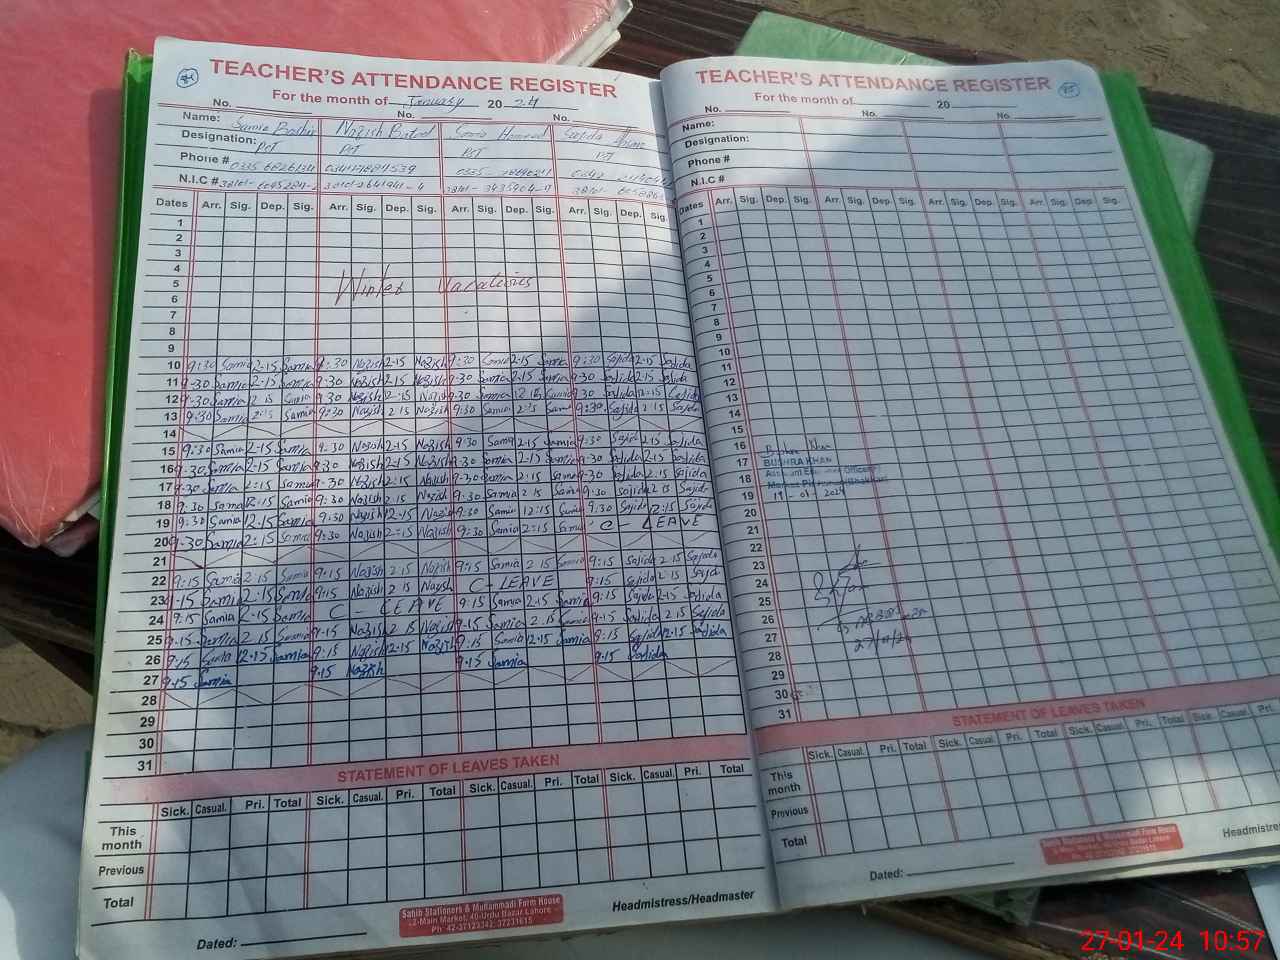 TEACHER'S ATTENDANCE REGISTER
For the month of January 20 24
No. No. No.
Name: Samia Bashir Nazish Batool Samia Hameed Sajida
Designation: PST PST PST PST
Phone # 0335
N.I.C #
Dates Arr. Sig. Dep. Sig. Arr. Sig. Dep. Sig. Arr. Sig. Dep. Sig. Arr. Sig. Dep. Sig.
1
2
3
4
5 Winter Vacations
6
7
8
9
10 9:30 Samia 2-15 Samia 9:30 Nazish 2-15 Nazish 9:30 Samia 2-15 Samia 9:30 Sajida 2-15 Sajida
11 9-30 Samia 2-15 Samia 9-30 Nazish 2-15 Nazish 9-30 Samia 2-15 Samia 9-30 Sajida 2-15 Sajida
12 9-30 Samia 2 15 Samia 9 30 Nazish 2-15 Nazish 9 30 Samia 2 15 Samia 9 30 Sajida 2-15 Sajida
13 9:30 Samia 2:15 Samia 9:30 Nazish 2 15 Nazish 9:30 Samia 2:15 Samia 9:30 Sajida 2 15 Sajida
14
15 9:30 Samia 2-15 Samia 9:30 Nazish 2-15 Nazish 9:30 Samia 2-15 Samia 9:30 Sajida 2-15 Sajida
16 9-30 Samia 2-15 Samia 9-30 Nazish 2-15 Nazish 9-30 Samia 2-15 Samia 9-30 Sajida 2-15 Sajida
17 9-30 Samia 2:15 Samia 9-30 Nazish 2:15 Nazish 9-30 Samia 2:15 Samia 9-30 Sajida 2:15 Sajida
18 9:30 Samia 2:15 Samia 9:30 Nazish 2:15 Nazish 9:30 Samia 2 15 Samia 9:30 Sajida 2 15 Sajida
19 9:30 Samia 12-15 Samia 9:30 Nazish 12-15 Nazish 9:30 Samia 12:15 Samia 9:30 Sajida 12:15 Sajida
20 9-30 Samia 2:15 Samia 9:30 Nazish 2:15 Nazish 9:30 Samia 2:15 Samia C - LEAVE
21
22 9:15 Samia 2 15 Samia 9:15 Nazish 2 15 Nazish 9:15 Samia 2 15 Samia 9:15 Sajida 2 15 Sajida
23 9-15 Samia 2:15 Samia 9:15 Nazish 2 15 Nazish C-LEAVE 9:15 Sajida 2 15 Sajida
24 9:15 Samia 2-15 Samia C - LEAVE 9:15 Samia 2-15 Samia 9:15 Sajida 2-15 Sajida
25 9-15 Samia 2 15 Samia 9-15 Nazish 2 15 Nazish 9-15 Samia 2-15 Samia 9:15 Sajida 2 15 Sajida
26 9-15 Samia 12-15 Samia 9:15 Nazish 12-15 Nazish 9:15 Samia 12-15 Samia 9:15 Sajida 12-15 Sajida
27 9-15 Samia 9.15 Nazish 9-15 Samia 9-15 Sajida
28
29
30
31
STATEMENT OF LEAVES TAKEN
Sick. Casual. Pri. Total Sick. Casual. Pri. Total Sick. Casual. Pri. Total Sick. Casual. Pri. Total
This month
Previous
Total
Sahib Stationers & Muhammadi Form House
12-Main Market, 40-Urdu Bazar Lahore
Ph: 42-37123342, 37231615
Headmistress/Headmaster
Dated:
TEACHER'S ATTENDANCE REGISTER
For the month of 20
No. No. No.
Name:
Designation:
Phone #
N.I.C #
Dates Arr. Sig. Dep. Sig. Arr. Sig. Dep. Sig. Arr. Sig. Dep. Sig. Arr. Sig. Dep. Sig.
1
2
3
4
5
6
7
8
9
10
11
12
13
14
15
16
17 BUSHRA KHAN
18
19 19-01-2024
20
21
22
23
24
25
26
27
28
29
30
31
STATEMENT OF LEAVES TAKEN
Sick. Casual. Pri. Total Sick. Casual. Pri. Total Sick. Casual. Pri. Total Sick. Casual. Pri.
This month
Previous
Total
Sahib Stationers & Muhammadi Form House
12-Main Market, 40-Urdu Bazar Lahore
Ph: 42-37123342, 37231615
Headmistress
Dated:
27-01-24 10:57